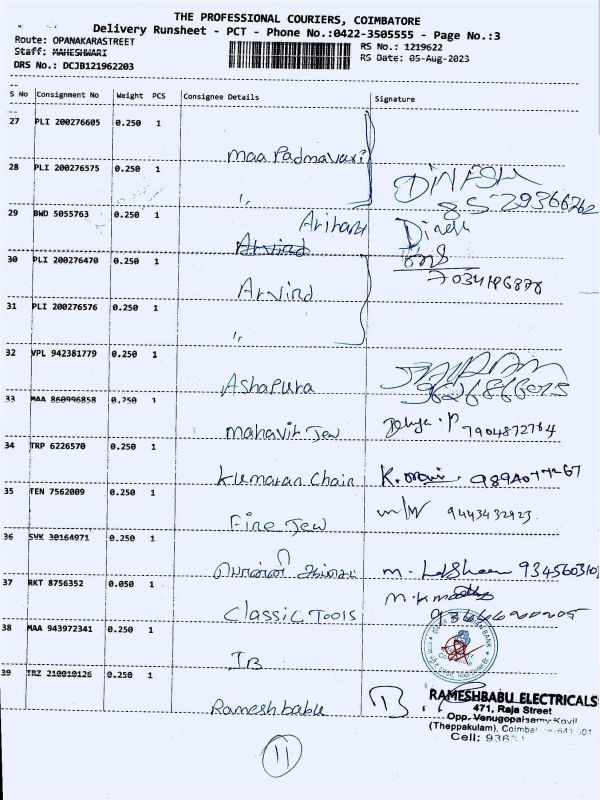 THE PROFESSIONAL COURIERS, COIMBATORE
Delivery Runsheet - PCT - Phone No.:0422-3505555 - Page No.:3
Route: OPANAKARASTREET
RS No.: 1219622
Staff: MAHESHWARI
RS Date: 05-Aug-2023
DRS No.: DCJB121962203
S No Consignment No Weight PCS Consignee Details Signature
27 PLI 200276605 0.250 1
maa Padmavati
28 PLI 200276575 0.250 1
〃 DINESH
29 BWD 5055763 0.250 1
Arihant Dinesh
30 PLI 200276470 0.250 1
Arvind 7034186878
31 PLI 200276576 0.250 1
〃
32 VPL 942381779 0.250 1
Ashapura
33 MAA 860996858 0.250 1
mahavir Jew 7904872764
34 TRP 6226570 0.250 1
Kumaran Chain
35 TEN 7562009 0.250 1
Fine Jew 9443432923
36 SVK 30164971 0.250 1
37 RKT 8756352 0.050 1
Classic Tools
38 MAA 943972341 0.250 1
IB
39 TRZ 210010126 0.250 1
Rameshbabu
RAMESHBABU ELECTRICALS
471, Raja Street
Opp. Venugopalsamy Kovil
(Theppakulam),
Cell:
11